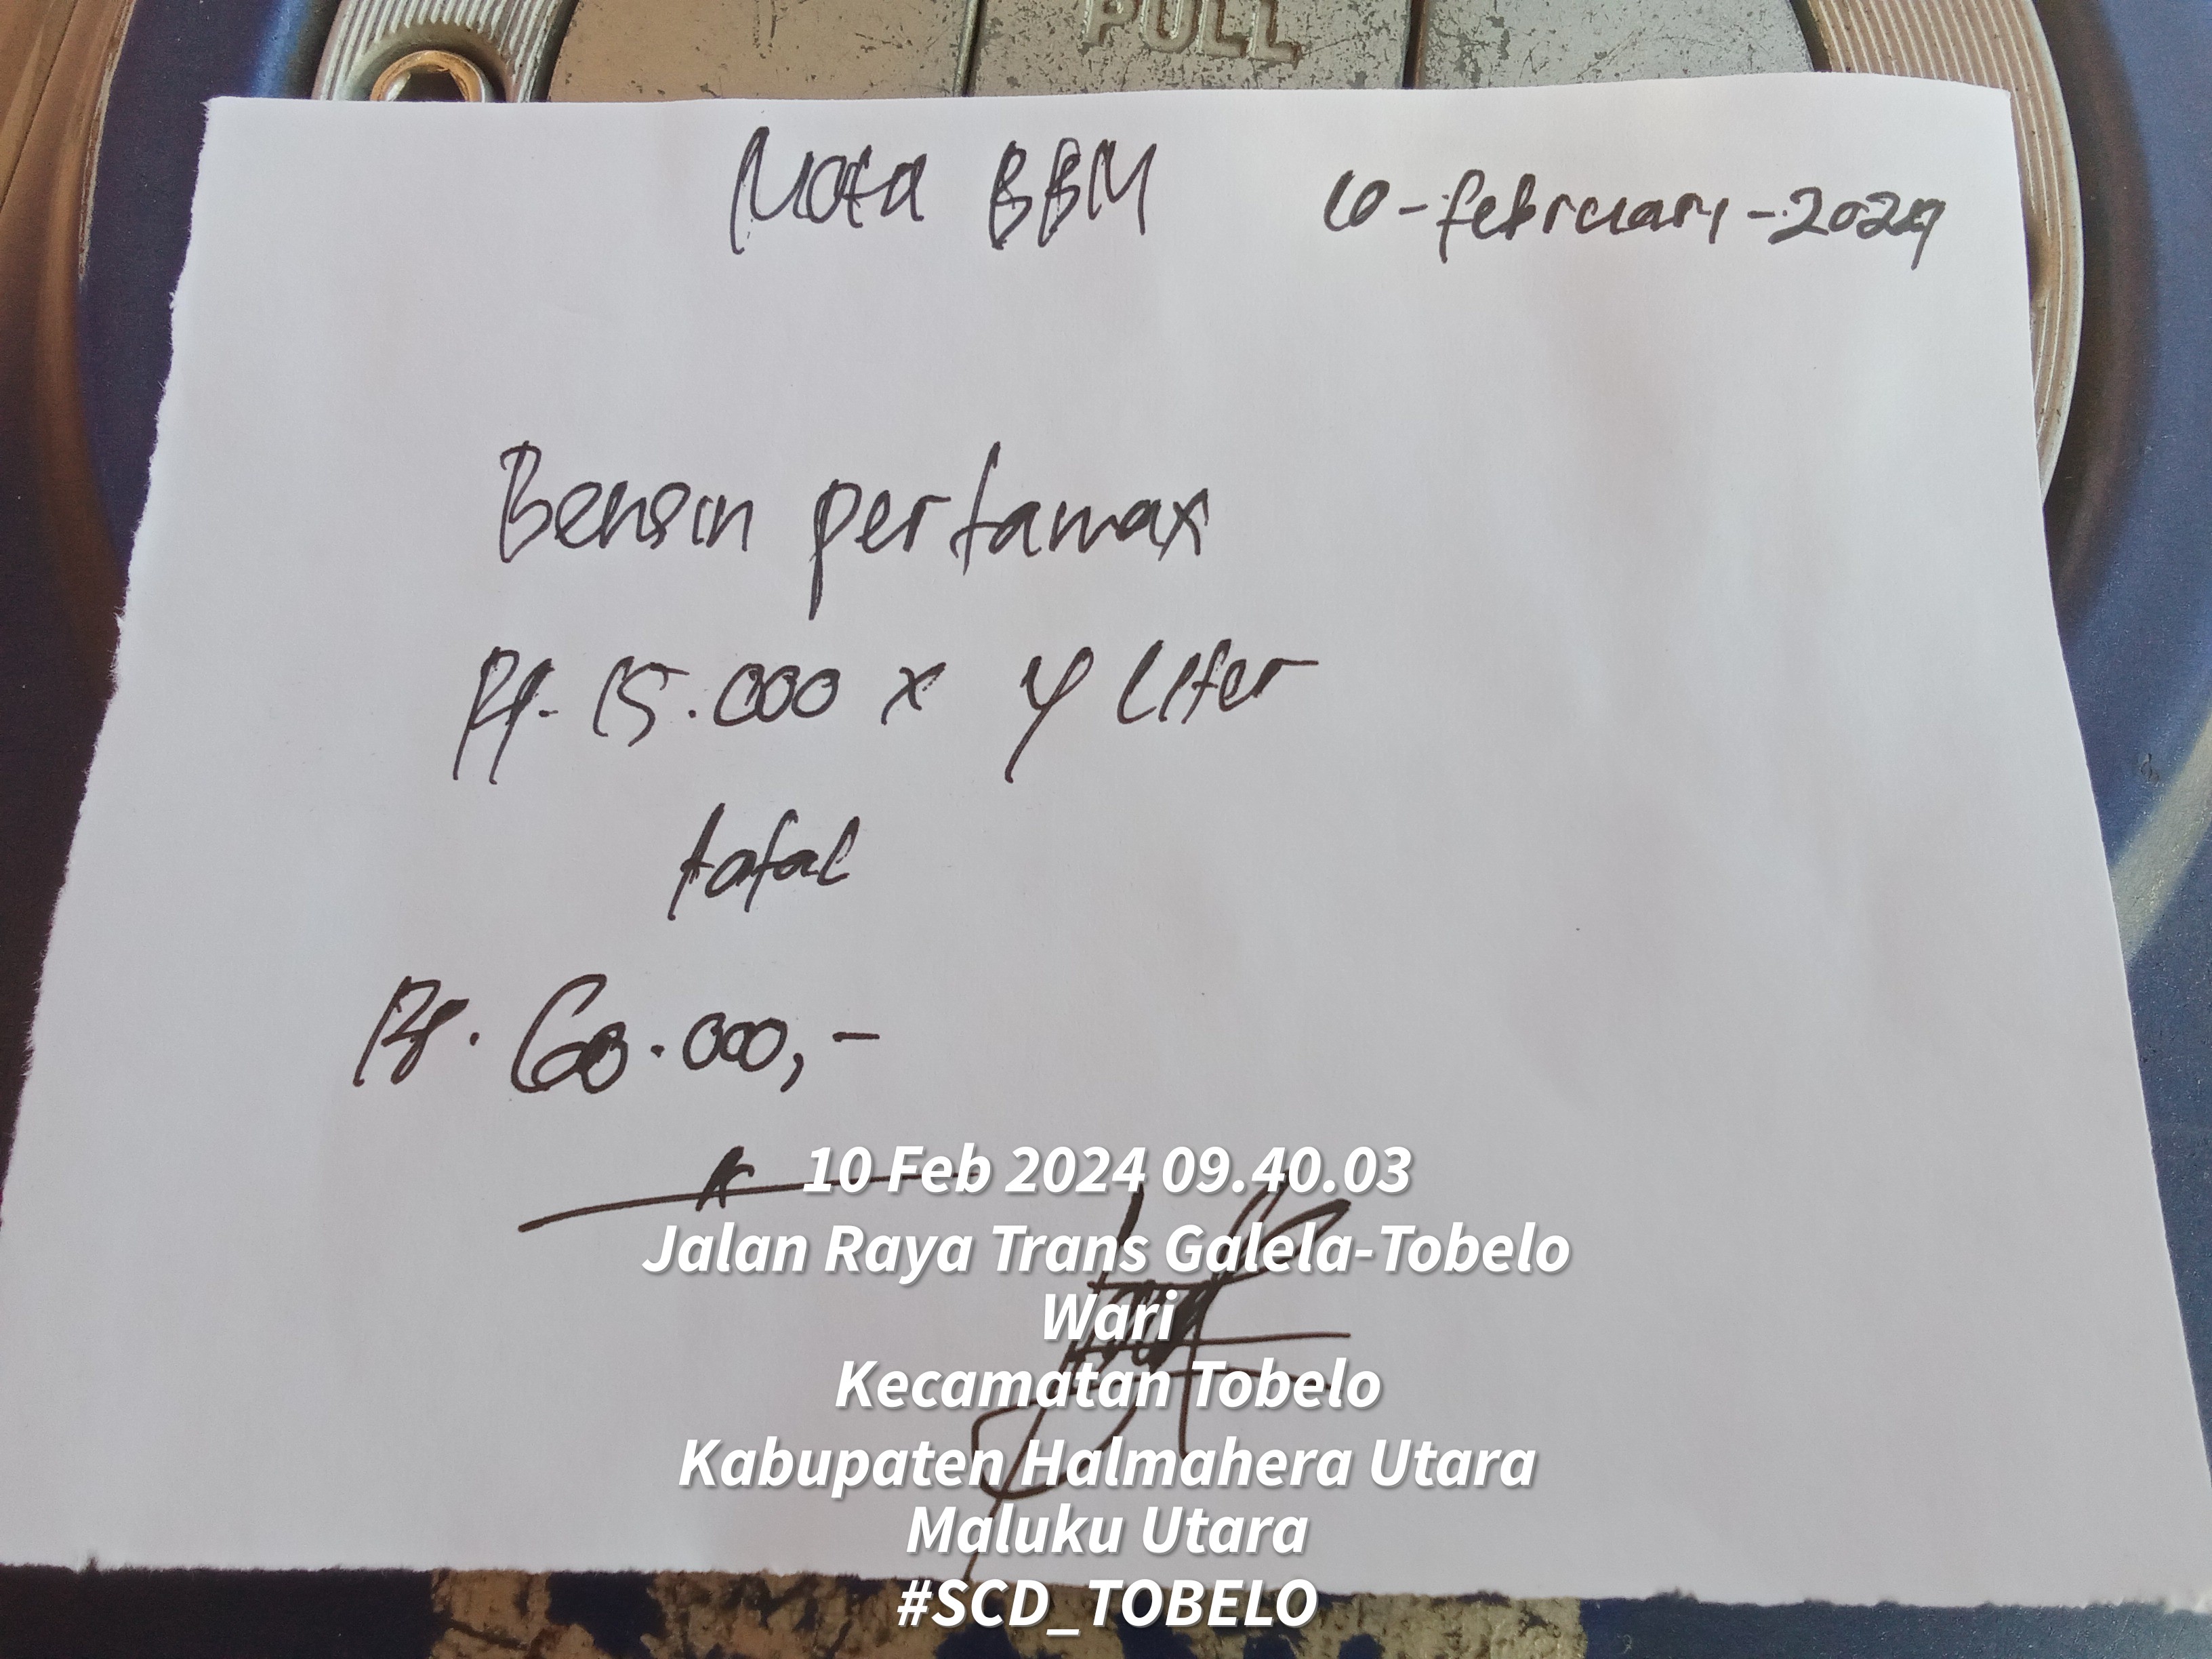 PULL
Nota BBM 10-februari-2024
Bensin pertamax
Rp. 15.000 x 4 Liter
total
Rp. 60.000,-
10 Feb 2024 09.40.03
Jalan Raya Trans Galela-Tobelo
Wari
Kecamatan Tobelo
Kabupaten Halmahera Utara
Maluku Utara
#SCD_TOBELO